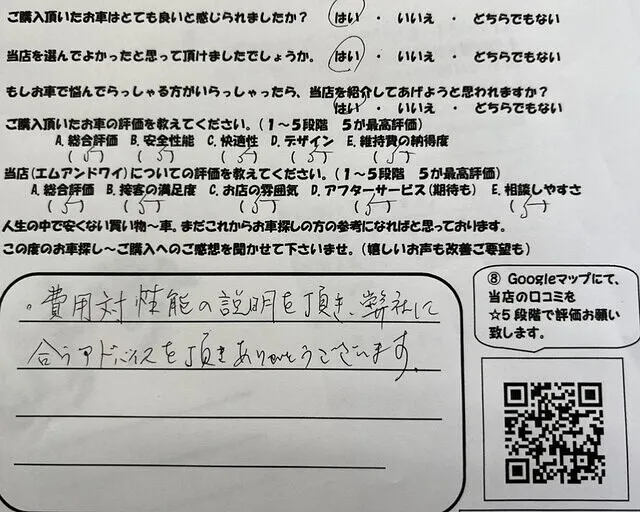 ご購入頂いたお車はとても良いと感じられましたか? はい ・ いいえ ・ どちらでもない
当店を選んでよかったと思って頂けましたでしょうか。 はい ・ いいえ ・ どちらでもない
もしお車で悩んでらっしゃる方がいらっしゃったら、当店を紹介してあげようと思われますか?
はい ・ いいえ ・ どちらでもない
ご購入頂いたお車の評価を教えてください。(1~5段階 5が最高評価)
A.総合評価 B.安全性能 C.快適性 D.デザイン E.維持費の納得度
(5) (5) (5) (5) (5)
当店(エムアンドワイ)についての評価を教えてください。(1~5段階 5が最高評価)
A.総合評価 B.接客の満足度 C.お店の雰囲気 D.アフターサービス(期待も) E.相談しやすさ
(5) (5) (5) (5) (5)
人生の中で安くない買い物~車。まだこれからお車探しの方の参考になればと思っております。
この度のお車探し~ご購入へのご感想を聞かせて下さいませ。(嬉しいお声も改善ご要望も)
。費用対性能の説明を頂き、弊社に
合うアドバイスを頂きありがとうございます。
⑧ Googleマップにて、
当店の口コミを
☆5段階で評価お願い
致します。